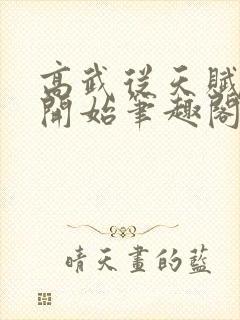 高武从天赋
開始筆趣閣
晴天畫的藍